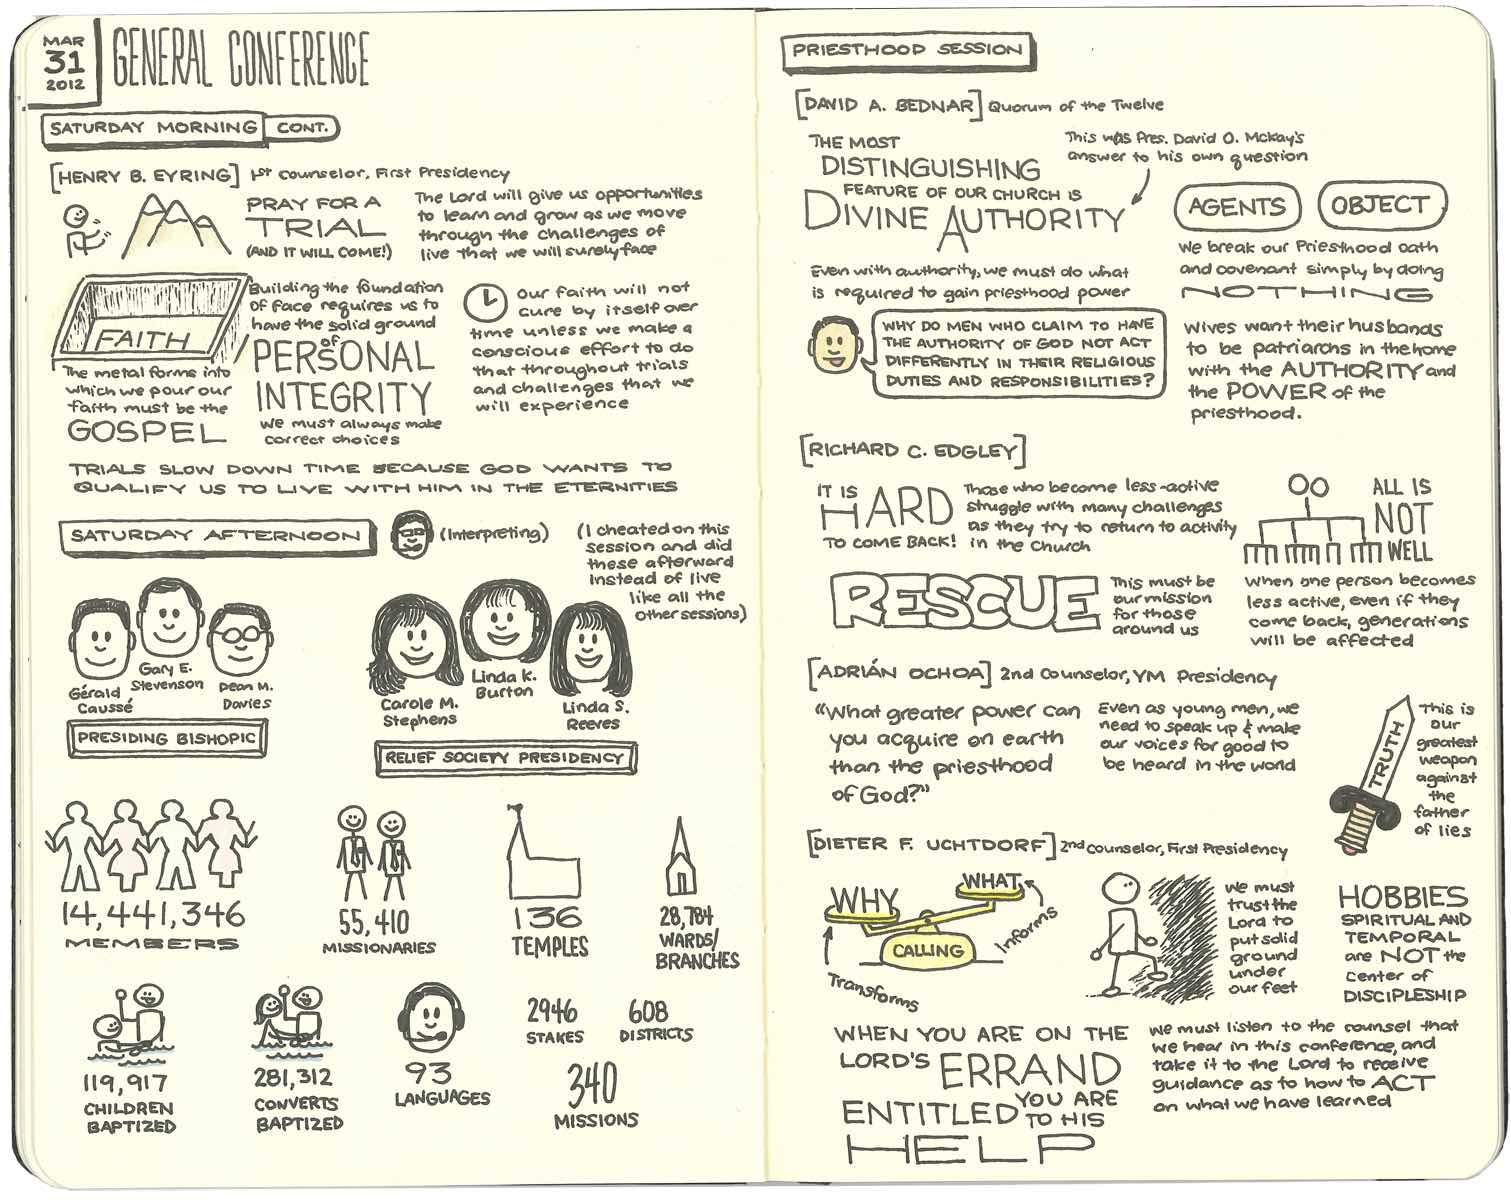 MAR
31
2012
GENERAL CONFERENCE
SATURDAY MORNING CONT.
[HENRY B. EYRING] 1st counselor, First Presidency
PRAY FOR A
TRIAL
(AND IT WILL COME!)
The Lord will give us opportunities
to learn and grow as we move
through the challenges of
live that we will surely face
FAITH
The metal forms into
which we pour our
faith must be the
GOSPEL
Building the foundation
of face requires us to
have the solid ground
of
PERSONAL
INTEGRITY
We must always make
correct choices
Our faith will not
cure by itself over
time unless we make a
conscious effort to do
that throughout trials
and challenges that we
will experience
TRIALS SLOW DOWN TIME BECAUSE GOD WANTS TO
QUALIFY US TO LIVE WITH HIM IN THE ETERNITIES
SATURDAY AFTERNOON
(Interpreting)
(I cheated on this
session and did
these afterward
instead of live
like all the
other sessions)
Gérald
Caussé
Gary E.
Stevenson
Dean M.
Davies
PRESIDING BISHOPIC
Carole M.
Stephens
Linda K.
Burton
Linda S.
Reeves
RELIEF SOCIETY PRESIDENCY
14,441,346
MEMBERS
55,410
MISSIONARIES
136
TEMPLES
28,784
WARDS/
BRANCHES
119,917
CHILDREN
BAPTIZED
281,312
CONVERTS
BAPTIZED
93
LANGUAGES
2946
STAKES
608
DISTRICTS
340
MISSIONS
PRIESTHOOD SESSION
[DAVID A. BEDNAR] Quorum of the Twelve
THE MOST
DISTINGUISHING
FEATURE OF OUR CHURCH IS
DIVINE AUTHORITY
This was Pres. David O. McKay's
answer to his own question
Even with authority, we must do what
is required to gain priesthood power
WHY DO MEN WHO CLAIM TO HAVE
THE AUTHORITY OF GOD NOT ACT
DIFFERENTLY IN THEIR RELIGIOUS
DUTIES AND RESPONSIBILITIES?
AGENTS
OBJECT
We break our Priesthood oath
and covenant simply by doing
NOTHING
Wives want their husbands
to be patriarchs in the home
with the AUTHORITY and
the POWER of the
priesthood.
[RICHARD C. EDGLEY]
IT IS
HARD
TO COME BACK!
Those who become less-active
struggle with many challenges
as they try to return to activity
in the Church
RESCUE
This must be
our mission
for those
around us
ALL IS
NOT
WELL
When one person becomes
less active, even if they
come back, generations
will be affected
[ADRIÁN OCHOA] 2nd Counselor, YM Presidency
"What greater power can
you acquire on earth
than the priesthood
of God?"
Even as young men, we
need to speak up & make
our voices for good to
be heard in the world
TRUTH
This is
our
greatest
weapon
against
the
father
of lies
[DIETER F. UCHTDORF] 2nd counselor, First Presidency
WHY
WHAT
CALLING
Transforms
Informs
We must
trust the
Lord to
put solid
ground
under
our feet
HOBBIES
SPIRITUAL AND
TEMPORAL
are NOT the
center of
DISCIPLESHIP
WHEN YOU ARE ON THE
LORD'S ERRAND
YOU ARE
ENTITLED TO HIS
HELP
We must listen to the counsel that
we hear in this conference, and
take it to the Lord to receive
guidance as to how to ACT
on what we have learned